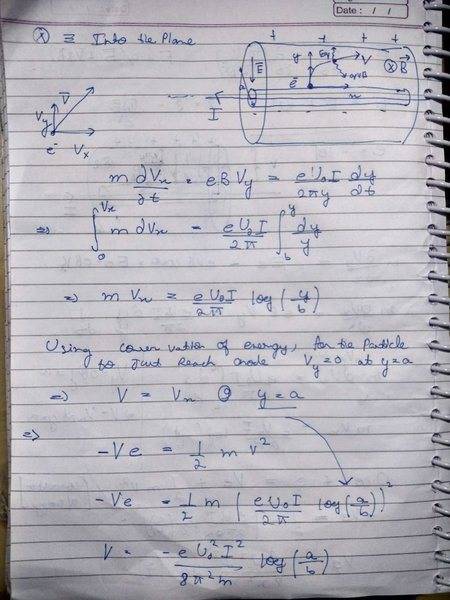 Date : / /
ⓧ ≡ Into the Plane
+ + + +
y eVyB V
E evxB ⓧ B
e⁻ x
I
- - - -
Vy V
e⁻ Vx
m dVx/dt = eBVy = eU₀I/2πy dy/dt
⇒ ∫₀^Vx m dVx = eU₀I/2π ∫_b^y dy/y
⇒ m Vx = eU₀I/2π log(y/b)
Using conservation of energy, for the Particle
to Just Reach anode Vy=0 at y=a
⇒ V = Vx @ y=a
⇒
-Ve = 1/2 m v²
-Ve = 1/2 m (eU₀I/2π log(a/b))²
V = -eU₀²I²/8π²m log(a/b)